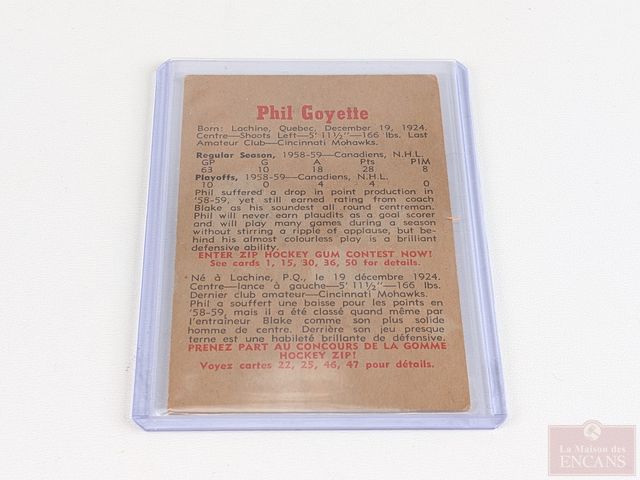 Phil Goyette
Born: Lachine, Quebec, December 19, 1924.
Centre—Shoots Left—5' 11½"—166 lbs. Last
Amateur Club—Cincinnati Mohawks.
Regular Season, 1958-59—Canadiens, N.H.L.
GP G A Pts PIM
63 10 18 28 8
Playoffs, 1958-59—Canadiens, N.H.L.
10 0 4 4 0
Phil suffered a drop in point production in
'58-59, yet still earned rating from coach
Blake as his soundest all round centreman.
Phil will never earn plaudits as a goal scorer
and will play many games during a season
without stirring a ripple of applause, but be-
hind his almost colourless play is a brilliant
defensive ability.
ENTER ZIP HOCKEY GUM CONTEST NOW!
See cards 1, 15, 30, 36, 50 for details.
Né à Lachine, P.Q., le 19 décembre 1924.
Centre—lance à gauche—5' 11½"—166 lbs.
Dernier club amateur—Cincinnati Mohawks.
Phil a souffert une baisse pour les points en
'58-59, mais il a été classé quand même par
l'entraîneur Blake comme son plus solide
homme de centre. Derrière son jeu presque
terne est une habileté brillante de défensive.
PRENEZ PART AU CONCOURS DE LA GOMME
HOCKEY ZIP!
Voyez cartes 22, 25, 46, 47 pour détails.
La Maison des
ENCANS